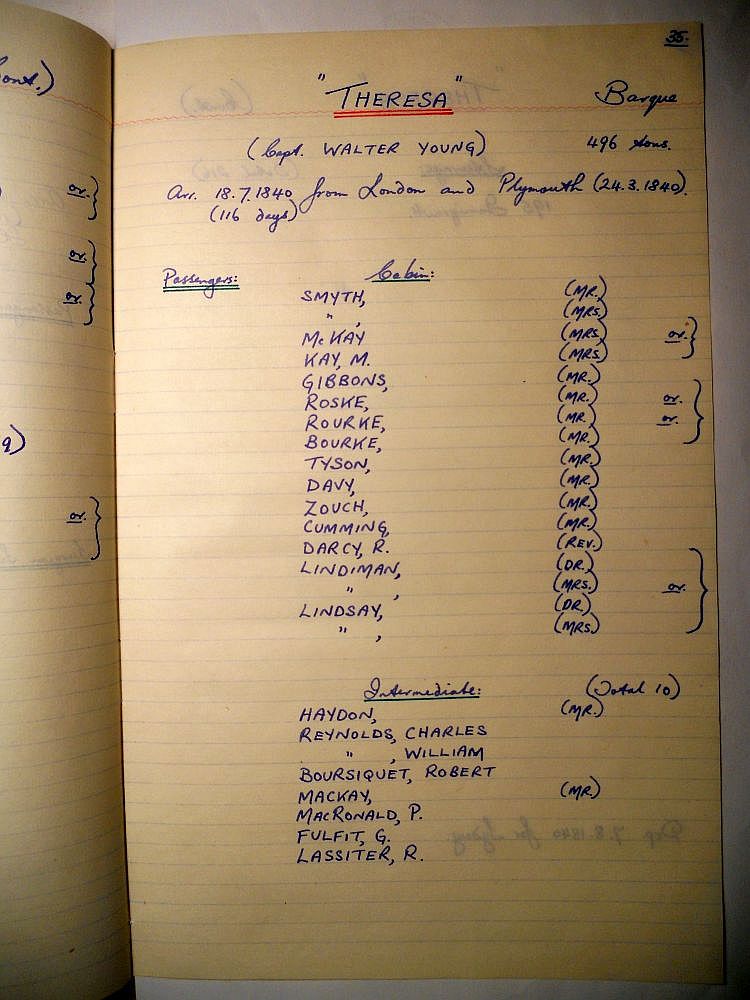 35.
"THERESA" Barque
(Capt. WALTER YOUNG) 496 tons.
Arr. 18.7.1840 from London and Plymouth (24.3.1840).
(116 days)
Passengers: Cabin:
SMYTH, (MR.)
" , (MRS)
McKAY (MRS) or.
KAY, M. (MRS)
GIBBONS, (MR.)
ROSKE, (MR.) or.
ROURKE, (MR.) or.
BOURKE, (MR.)
TYSON, (MR.)
DAVY, (MR.)
ZOUCH, (MR.)
CUMMING, (MR.)
DARCY, R. (REV.)
LINDIMAN, (DR.)
" , (MRS.) or.
LINDSAY, (DR.)
" , (MRS.)
Intermediate: (Total 10)
HAYDON, (MR.)
REYNOLDS, CHARLES
" , WILLIAM
BOURSIQUET, ROBERT
MACKAY, (MR.)
MACRONALD, P.
FULFIT, G.
LASSITER, R.
Cont.)
or.
or.
or.
9)
or.